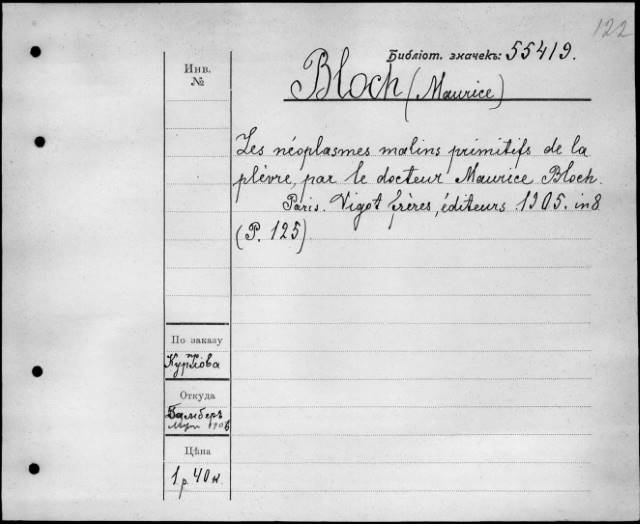 122
Библіот. значекъ: 55419.
Инв.
№
Bloch (Maurice)
Les néoplasmes malins primitifs de la
plèvre, par le docteur Maurice Bloch.
Paris. Vigot frères, éditeurs 1905. in 8
(P. 125)
По заказу
Откуда
Бамберъ
Цѣна
1 р. 40 к.